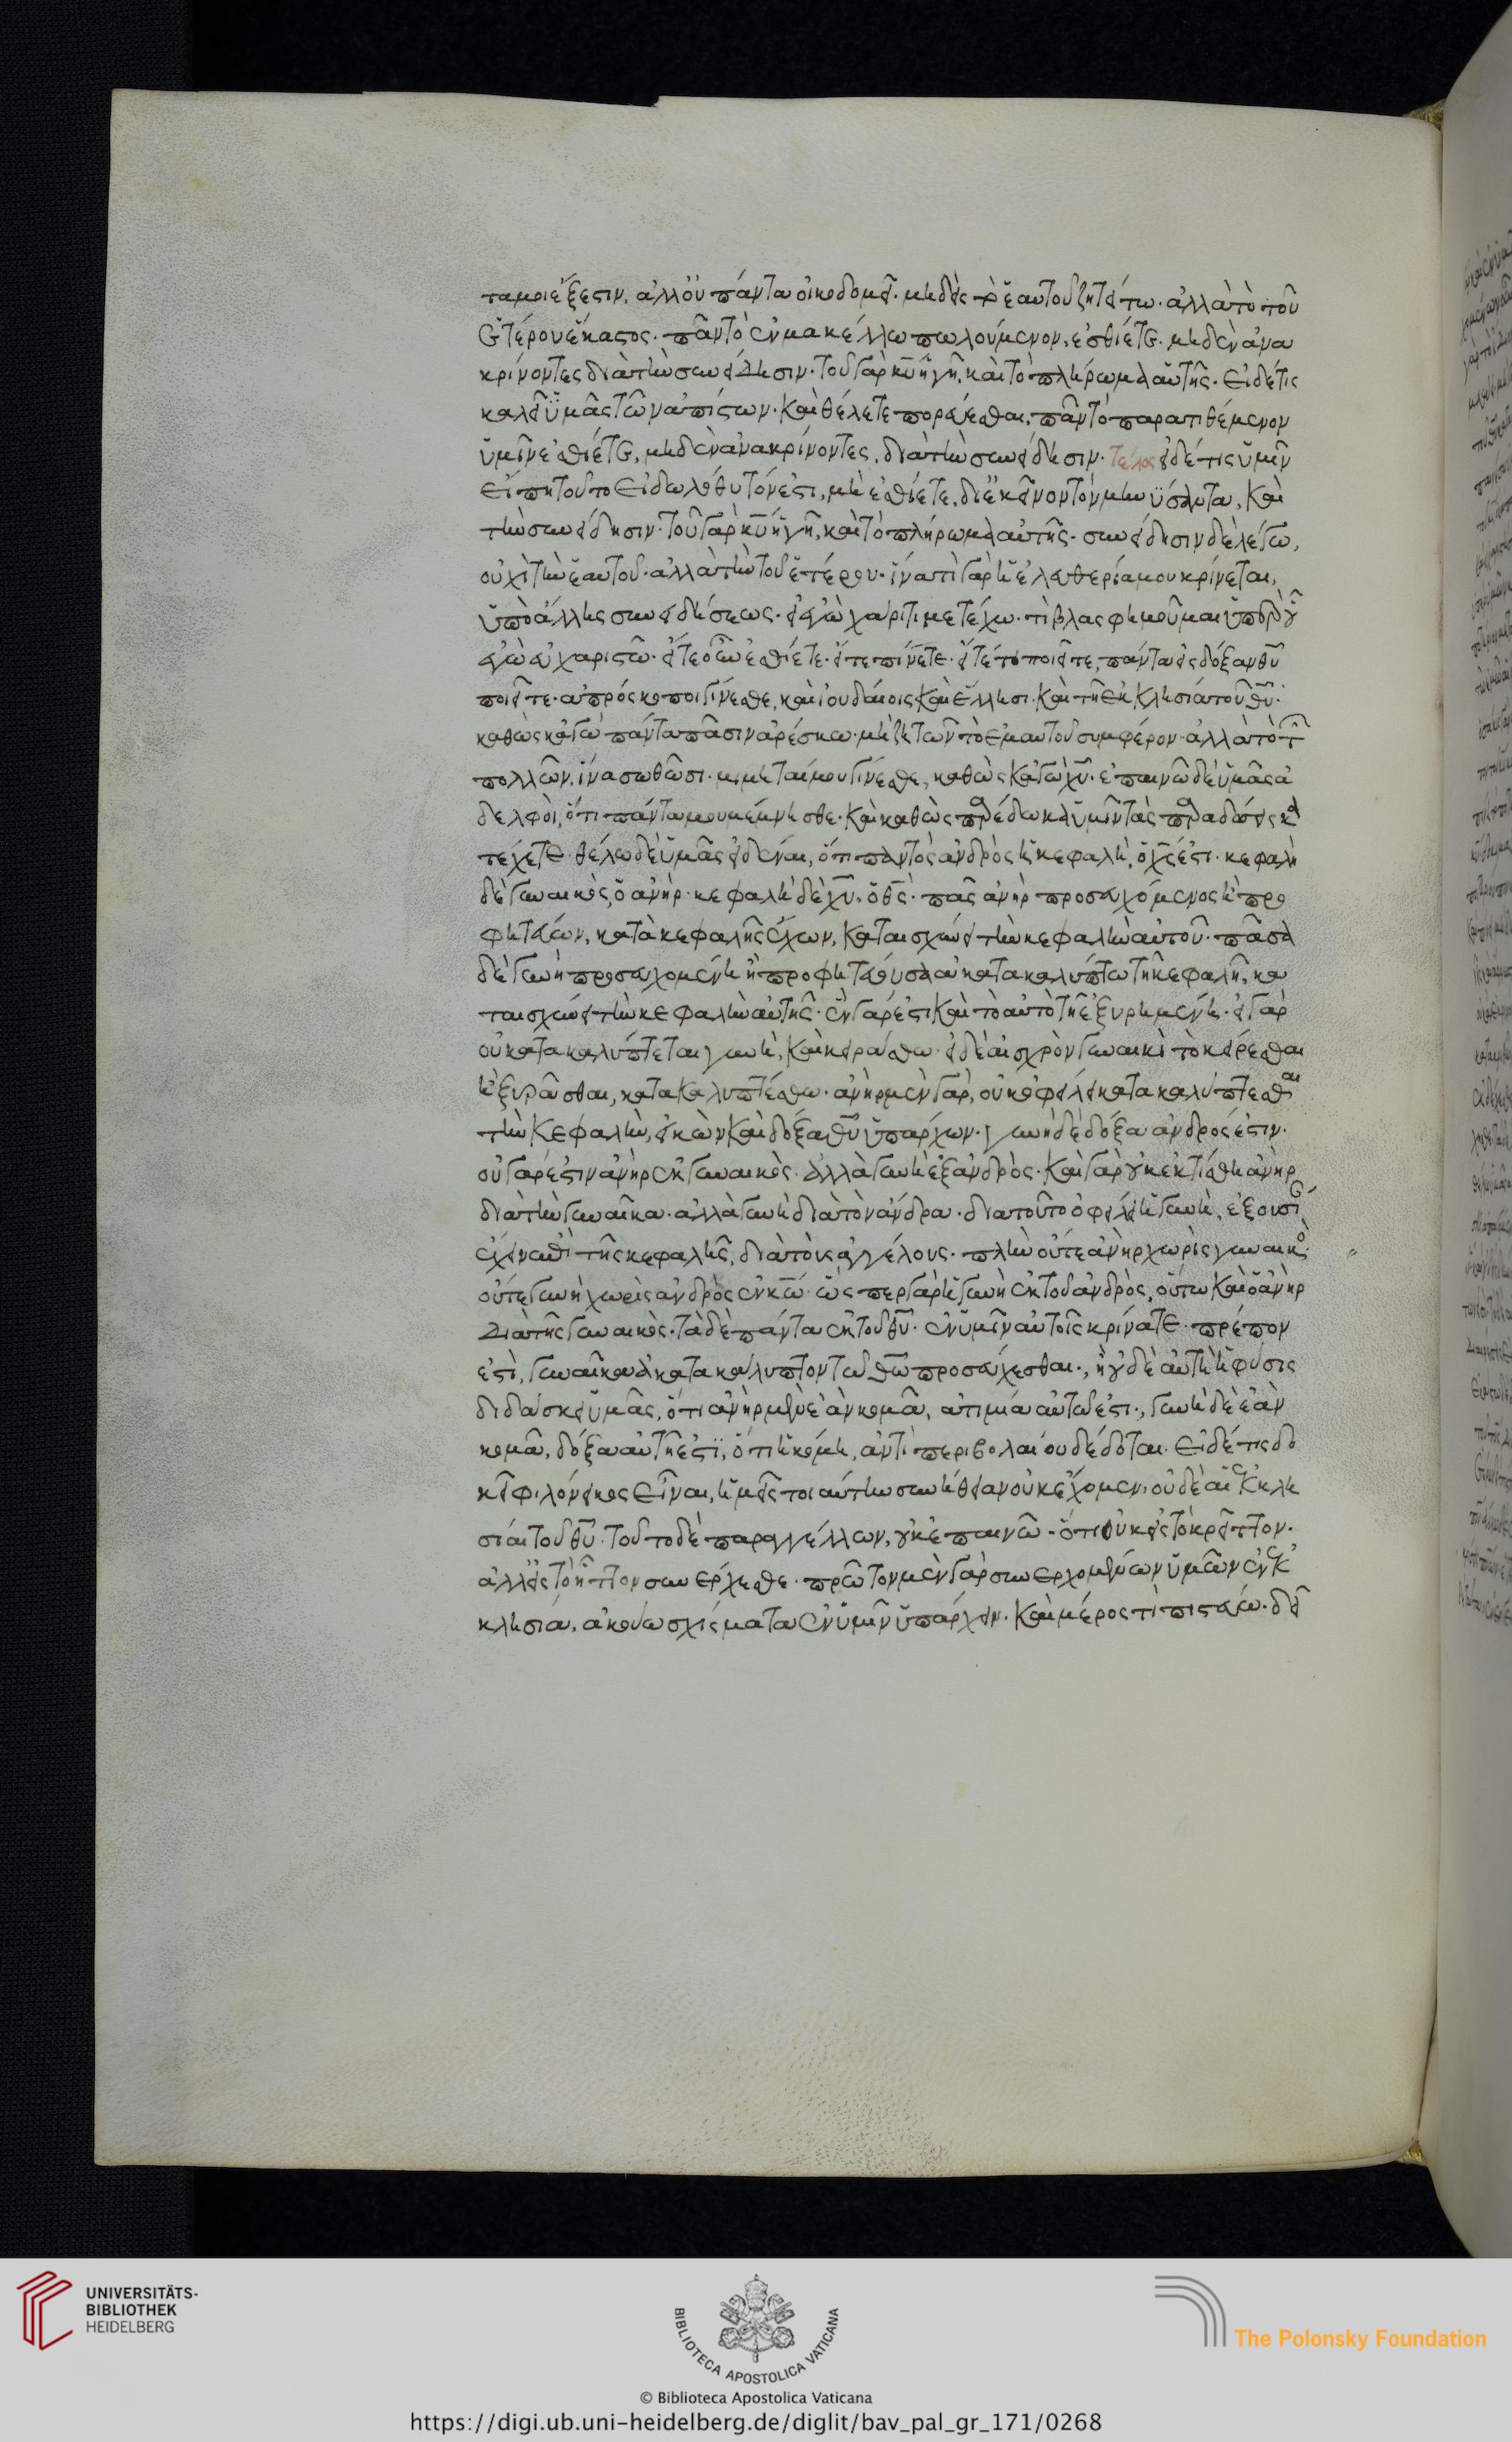 τα μοι ἔξεστιν, ἀλλ οὐ πάντα οἰκοδομεῖ. μηδεὶς τὸ ἑαυτοῦ ζητείτω. ἀλλὰ τὸ τοῦ
ἑτέρου ἕκαστος. πᾶν τὸ ἐν μακέλλω πωλούμενον, ἐσθίετε. μηδὲν ἀνα
κρίνοντες διὰ τὴν συνείδησιν. τοῦ γὰρ κυ ἡ γῆ, καὶ τὸ πλήρωμα αὐτῆς. εἰ δέ τις
καλεῖ ὑμᾶς τῶν ἀπίστων. καὶ θέλετε πορεύεσθαι, πᾶν τὸ παρατιθέμενον
ὑμῖν ἐσθίετε, μηδὲν ἀνακρίνοντες, διὰ τὴν συνείδησιν. τέλος εἰ δέ τις ὑμῖν
εἴπη τοῦτο εἰδωλόθυτόν ἐστι, μὴ ἐσθίετε, δι ἐκεῖνον τὸν μηνύσαντα, καὶ
τὴν συνείδησιν. τοῦ γὰρ κυ ἡ γῆ, καὶ τὸ πλήρωμα αὐτῆς. συνείδησιν δὲ λέγω,
οὐχὶ τὴν ἑαυτοῦ. ἀλλὰ τὴν τοῦ ἑτέρου. ἵνα τί γὰρ ἡ ἐλευθερία μου κρίνεται,
ὑπὸ ἄλλης συνειδήσεως. εἰ ἐγὼ χάριτι μετέχω. τί βλασφημοῦμαι ὑπὲρ οὗ
ἐγὼ εὐχαριστῶ. εἴτε οὖν ἐσθίετε. εἴτε πίνετε. εἴτε τι ποιεῖτε, πάντα εἰς δόξαν θυ
ποιεῖτε. ἀπρόσκοποι γίνεσθε, καὶ ἰουδαίοις καὶ ἕλλησι. καὶ τῆ ἐκκλησία τοῦ θυ.
καθὼς κἀγὼ πάντα πᾶσιν ἀρέσκω. μὴ ζητῶν τὸ ἐμαυτοῦ συμφέρον. ἀλλὰ τὸ τῶν
πολλῶν, ἵνα σωθῶσι. μιμηταί μου γίνεσθε, καθὼς κἀγὼ χυ. ἐπαινῶ δὲ ὑμᾶς ἀ
δελφοὶ, ὅτι πάντα μου μέμνησθε. καὶ καθὼς παρέδωκα ὑμῖν τὰς παραδόσεις κα
τέχετε. θέλω δὲ ὑμᾶς εἰδέναι, ὅτι παντὸς ἀνδρὸς ἡ κεφαλὴ, ὁ χς ἐστι. κεφαλὴ
δὲ γυναικὸς, ὁ ἀνήρ. κεφαλὴ δὲ χυ, ὁ θς. πᾶς ἀνὴρ προσευχόμενος ἢ προ
φητεύων, κατὰ κεφαλῆς ἔχων, καταισχύνει τὴν κεφαλὴν αὐτοῦ. πᾶσα
δὲ γυνὴ προσευχομένη ἢ προφητεύουσα ἀκατακαλύπτω τῆ κεφαλῆ, κα
ταισχύνει τὴν κεφαλὴν αὐτῆς. ἓν γάρ ἐστι καὶ τὸ αὐτὸ τῆ ἐξυρημένη. εἰ γὰρ
οὐ κατακαλύπτεται γυνὴ, καὶ κειράσθω. εἰ δὲ αἰσχρὸν γυναικὶ τὸ κείρεσθαι
ἢ ξυρᾶσθαι, κατακαλυπτέσθω. ἀνὴρ μὲν γὰρ, οὐκ ὀφείλει κατακαλύπτεσθαι
τὴν κεφαλὴν, εἰκὼν καὶ δόξα θυ ὑπάρχων. γυνὴ δὲ δόξα ἀνδρός ἐστιν.
οὐ γάρ ἐστιν ἀνὴρ ἐκ γυναικὸς. ἀλλὰ γυνὴ ἐξ ἀνδρὸς. καὶ γὰρ οὐκ ἐκτίσθη ἀνὴρ
διὰ τὴν γυναῖκα. ἀλλὰ γυνὴ διὰ τὸν ἄνδρα. διὰ τοῦτο ὀφείλει ἡ γυνὴ, ἐξουσί
ἔχειν ἐπὶ τῆς κεφαλῆς, διὰ τοὺς ἀγγέλους. πλὴν οὔτε ἀνὴρ χωρὶς γυναικὸς.
οὔτε γυνὴ χωρὶς ἀνδρὸς ἐν κω. ὥσπερ γὰρ ἡ γυνὴ ἐκ τοῦ ἀνδρὸς, οὕτω καὶ ὁ ἀνὴρ
διὰ τῆς γυναικὸς. τὰ δὲ πάντα ἐκ τοῦ θυ. ἐν ὑμῖν αὐτοῖς κρίνατε. πρέπον
ἐστὶ, γυναῖκα ἀκατακάλυπτον τῶ θω προσεύχεσθαι., ἢ οὐδὲ αὐτὴ ἡ φύσις
διδάσκει ὑμᾶς, ὅτι ἀνὴρ μὲν ἐὰν κομᾶ, ἀτιμία αὐτῶ ἐστι., γυνὴ δὲ ἐὰν
κομᾶ, δόξα αὐτῆ ἐστι, ὅτι ἡ κόμη, ἀντὶ περιβολαίου δέδοται. εἰ δέ τις δο
κεῖ φιλόνεικος εἶναι, ἡμεῖς τοιαύτην συνήθειαν οὐκ ἔχομεν, οὐδὲ αἱ ἐκκλη
σίαι τοῦ θυ. τοῦτο δὲ παραγγέλλων, οὐκ ἐπαινῶ. ὅτι οὐκ εἰς τὸ κρεῖττον.
ἀλλ εἰς τὸ ἧττον συνέρχεσθε. πρῶτον μὲν γὰρ συνερχομένων ὑμῶν ἐν ἐκ
κλησία, ἀκούω σχίσματα ἐν ὑμῖν ὑπάρχειν. καὶ μέρος τὶ πιστεύω. δεῖ
UNIVERSITÄTS-
BIBLIOTHEK
HEIDELBERG
BIBLIOTECA APOSTOLICA VATICANA
© Biblioteca Apostolica Vaticana
The Polonsky Foundation
https://digi.ub.uni-heidelberg.de/diglit/bav_pal_gr_171/0268